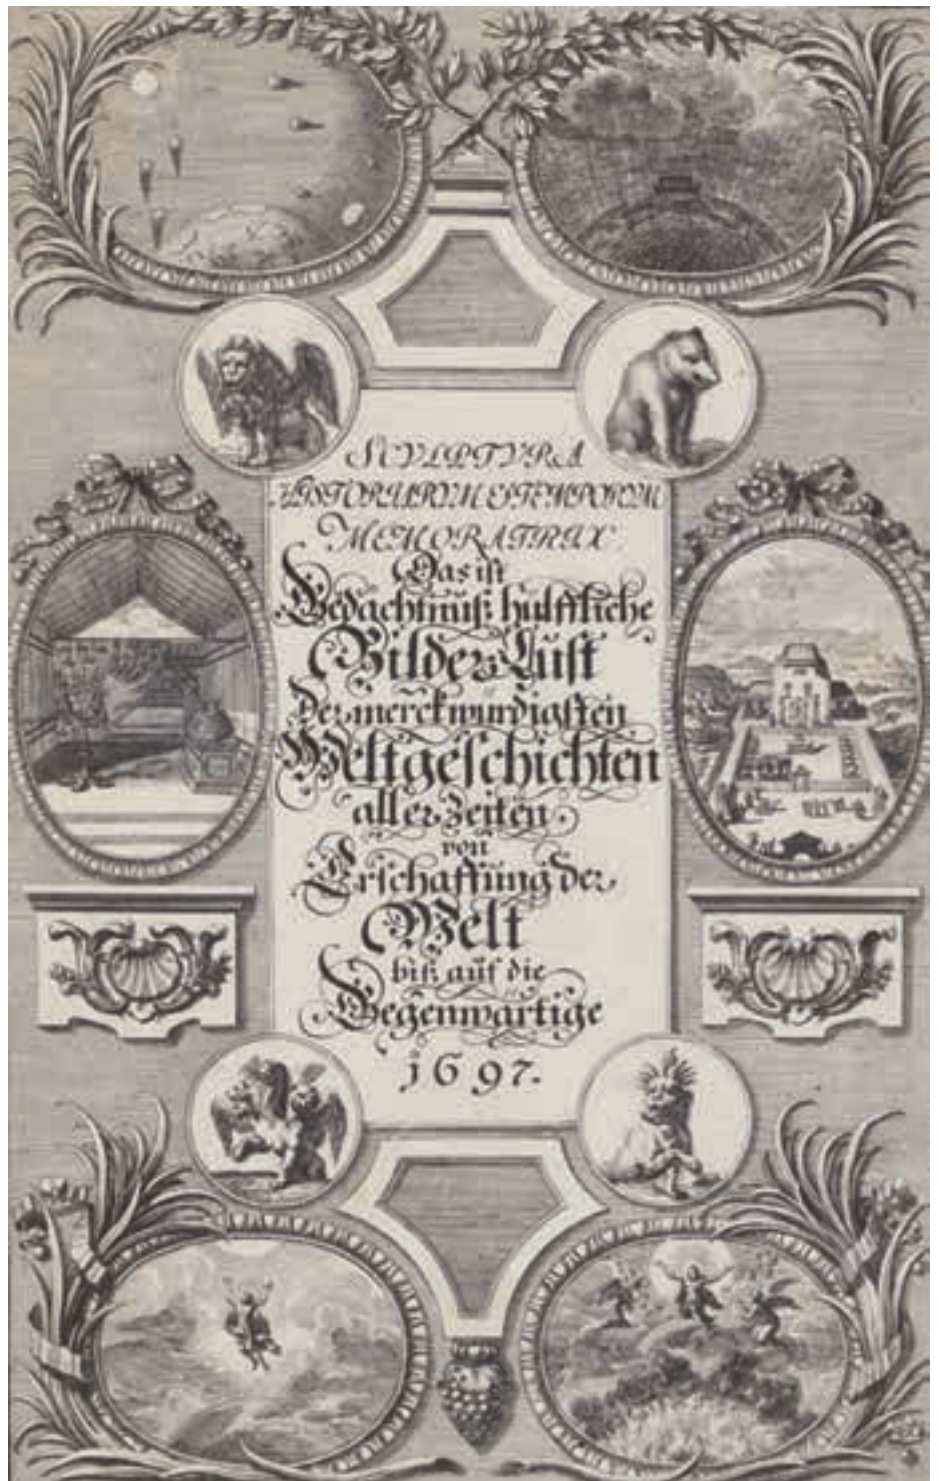 SCVLPTVRA
HISTORIARVM ET TEMPORVM
MEMORATRIX
Das ist
Gedächtnüß hülffliche
Bilder Lust
Der merckwürdigsten
Weltgeschichten
aller Zeiten
von
Erschaffung der
Welt
biß auf die
Gegenwärtige
1697.